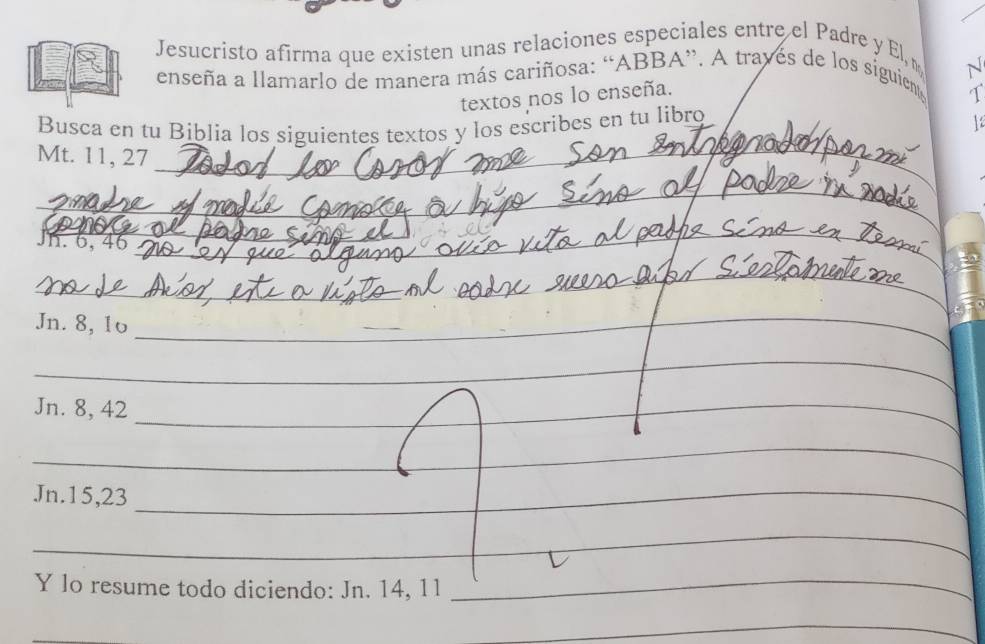 Jesucristo afirma que existen unas relaciones especiales entre el Padre y El, n
enseña a llamarlo de manera más cariñosa: “ABBA”. A través de los siguiente
textos nos lo enseña.
Busca en tu Biblia los siguientes textos y los escribes en tu libro
Mt. 11, 27 Todas las Cosas me son entregnadas por mi
madre y nadie comoce a hijo sino al padre ni nadie
conoce al padre sino el
Jn. 6, 46 no es que alguno avia visto al padre sino en
no de Dios, este a visto al padre
Jn. 8, 16
Jn. 8, 42
Jn.15,23
Y lo resume todo diciendo: Jn. 14, 11
N
T